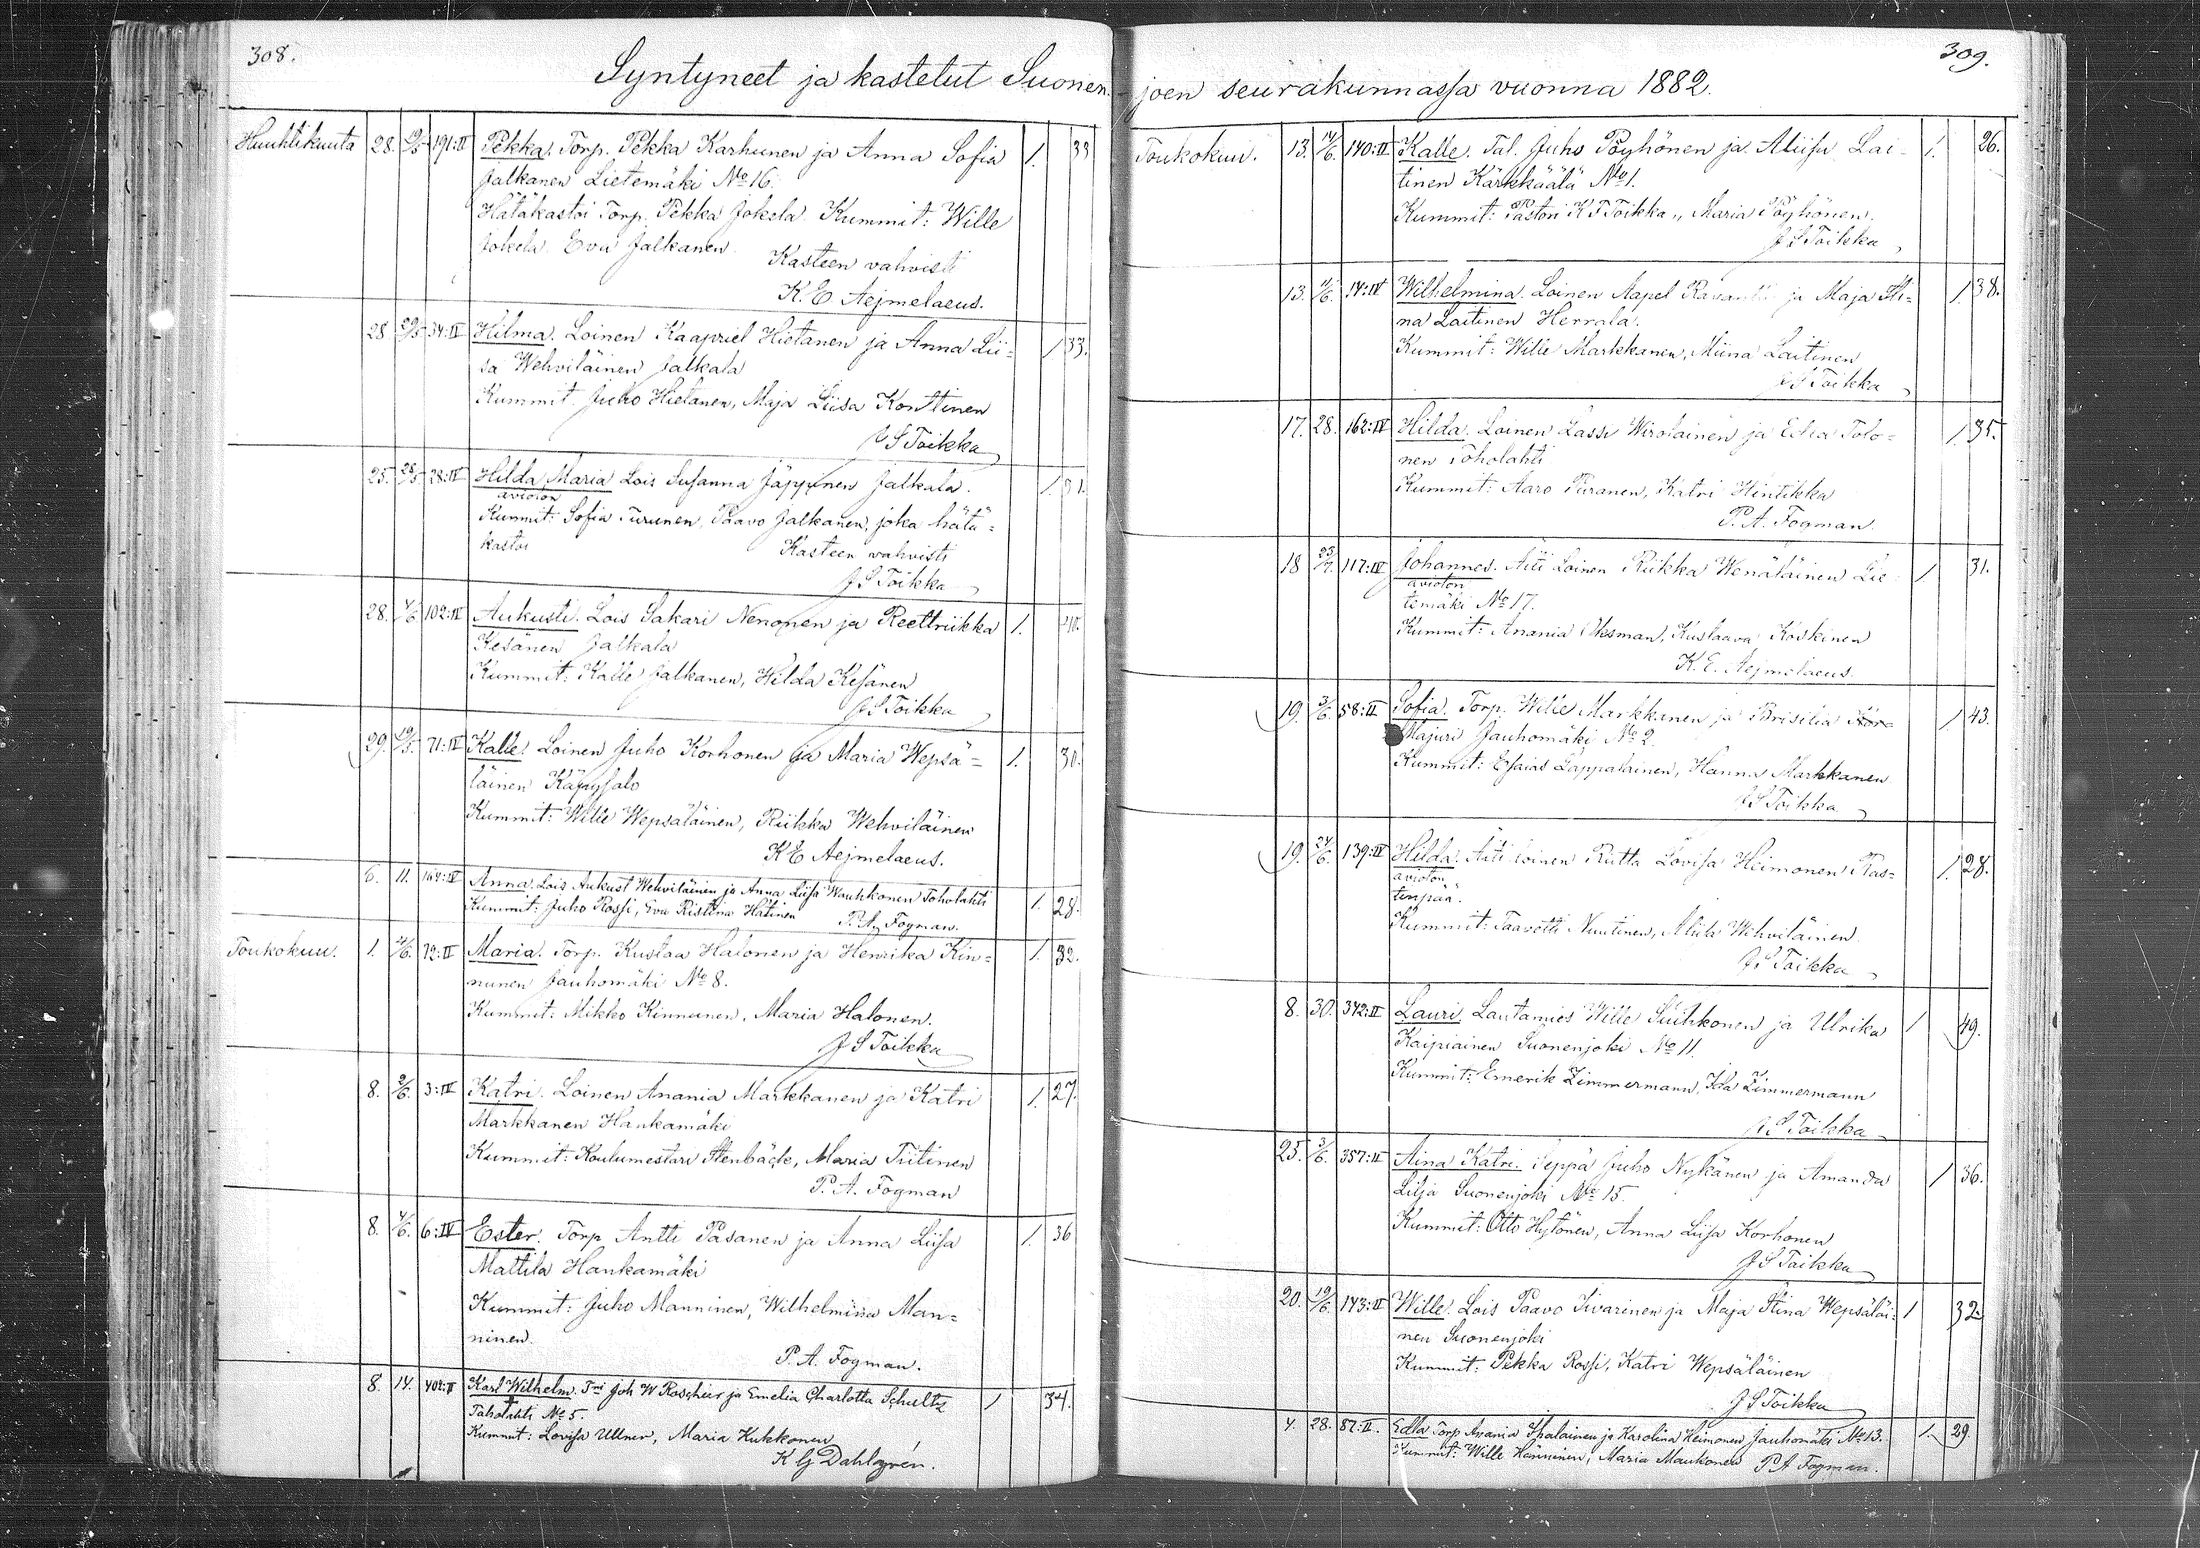 308.
Syntyneet ja kastetut Suonen-
Huuhtikuuta 28. 19/5 191:II Pekka. Torp. Pekka Karhunen ja Anna Sofia 1. 33
Jalkanen Lietemäki No 16.
Hätäkastoi Torp. Pekka Jokela. Kummit: Wille
Jokela. Eva Jalkanen. Kasteen vahvisti
K. E Aejmelaeus.
28 29/5 34:IV Hilma. Loinen Kaapriel Hietanen ja Anna Lii= 1 33.
sa Wehviläinen Jalkala
Kummit. Juho Hietanen, Maja Liisa Konttinen
J S Toikka
25. 28/5 28:IV Hilda Maria Lois Susanna Jäppinen Jalkala. 1. 31.
avioton
Kummit: Sofia Turunen, Paavo Jalkanen, joka hätä=
kastoi Kasteen vahvisti
J S Toikka
28. 4/6 102:IV Aukusti. Lois Sakari Nenonen ja Reettriikka 1. 40.
Kesänen Jalkala
Kummit: Kalle Jalkanen, Hilda Kesänen
J S Toikka
29. 19/5. 71:IV Kalle. Loinen Juho Korhonen ja Maria Wepsä= 1. 30.
läinen Käpysalo
Kummit: Wille Wepsäläinen, Riikka Wehviläinen
K E Aejmelaeus.
6. 11. 164:IV Anna. Lois Aukust Wehviläinen ja Anna Liisa Wauhkonen Toholahti 1. 28.
Kummit: Juho Rossi, Eva Ristina Hätinen P. A. Fogman.
Toukokuu. 1. 4/6. 72:II Maria. Torp. Kustaa Halonen ja Henrika Kin= 1. 32.
nunen Jauhomäki No 8.
Kummit: Mikko Kinnunen, Maria Halonen.
J S Toikka
8. 2/6. 3:IV Katri. Loinen Anania Markkanen ja Katri 1. 27.
Markkanen Hankamäki
Kummit: Koulumestari Stenbäck, Maria Tiitinen
P. A. Fogman
8. 4/6. 6:IV Ester. Torp Antti Pasanen ja Anna Liisa 1. 36
Mattila Hankamäki
Kummit: Juho Manninen, Wilhelmina Man=
ninen.
P. A. Fogman.
8. 14. 402:II Karl Wilhelm. Joh W Roscheir ja Emelia Charlotta Schultz 1 34.
Toholahti No 5.
Kummit: Lovisa Ullner, Maria Kukkonen
K G Dahlgrén.
309.
joen seurakunnassa vuonna 1882.
Toukokuu. 13. 14/6. 140:II Kalle. Tal. Juho Pöyhönen ja Aliisu Lai- 1. 26.
tinen Kärkkäälä No 1.
Kummit: Pastori K F Toikka, Maria Pöyhönen.
J S Toikka
13. 4/6. 14:IV Wilhelmina. Loinen Aapel ja Maja Sti= 1. 38.
na Laitinen Herrala.
Kummit: Wille Markkanen, Miina Laitinen
J S Toikka
17. 28. 162:IV Hilda. Loinen Lassi Wirolainen ja Eeva Tolo= 1. 35.
nen Toholahti
Kummit: Aaro Puranen, Katri Hintikka
P. A. Fogman.
18 23/7. 117:IV Johannes. Äiti Loinen Riikka Wenäläinen Lie- 1 31.
avioton
temäki No 17.
Kummit: Anania Oksman, Kustaava Koskinen
K. E. Aejmelaeus.
19. 3/6. 58:II Sofia. Torp. Wille Markkanen ja Brisilia 1. 43.
Majuri Jauhomäki No 2.
Kummit: Esaias Lappalainen, Hanna Markkanen
J S Toikka
19. 24/6. 139:IV Hilda. Äiti loinen Riitta Lovisa Heimonen Ras= 1. 28.
avioton
tinpää.
Kummit: Taavetti Nuutinen, Aliisa Wehviläinen
J S Toikka
8. 30. 342:II Lauri. Lautamies Wille Suihkonen ja Ulrika 1 49.
Kaipiainen Suonenjoki No 11.
Kummit: Emerik Zimmermann, Ida Zimmermann
J S Toikka
25. 3/6. 357:II Aina Katri. Seppä Juho Nykänen ja Amanda 1 36.
Lilja Suonenjoki No 15.
Kummit: Otto Hytönen, Anna Liisa Korhonen
J S Toikka
20. 19/6. 143:II Wille. Lois Paavo Iivarinen ja Maja Stina Wepsäläi- 1 32.
nen Suonenjoki
Kummit: Pekka Rossi, Katri Wepsäläinen
J S Toikka
4. 28. 87:II. Edla Torp Anania Ihalainen ja Karolina Heimonen Jauhomäki No 13. 1. 29.
Kummit: Wille Hänninen, Maria Maukonen P A Fogman.